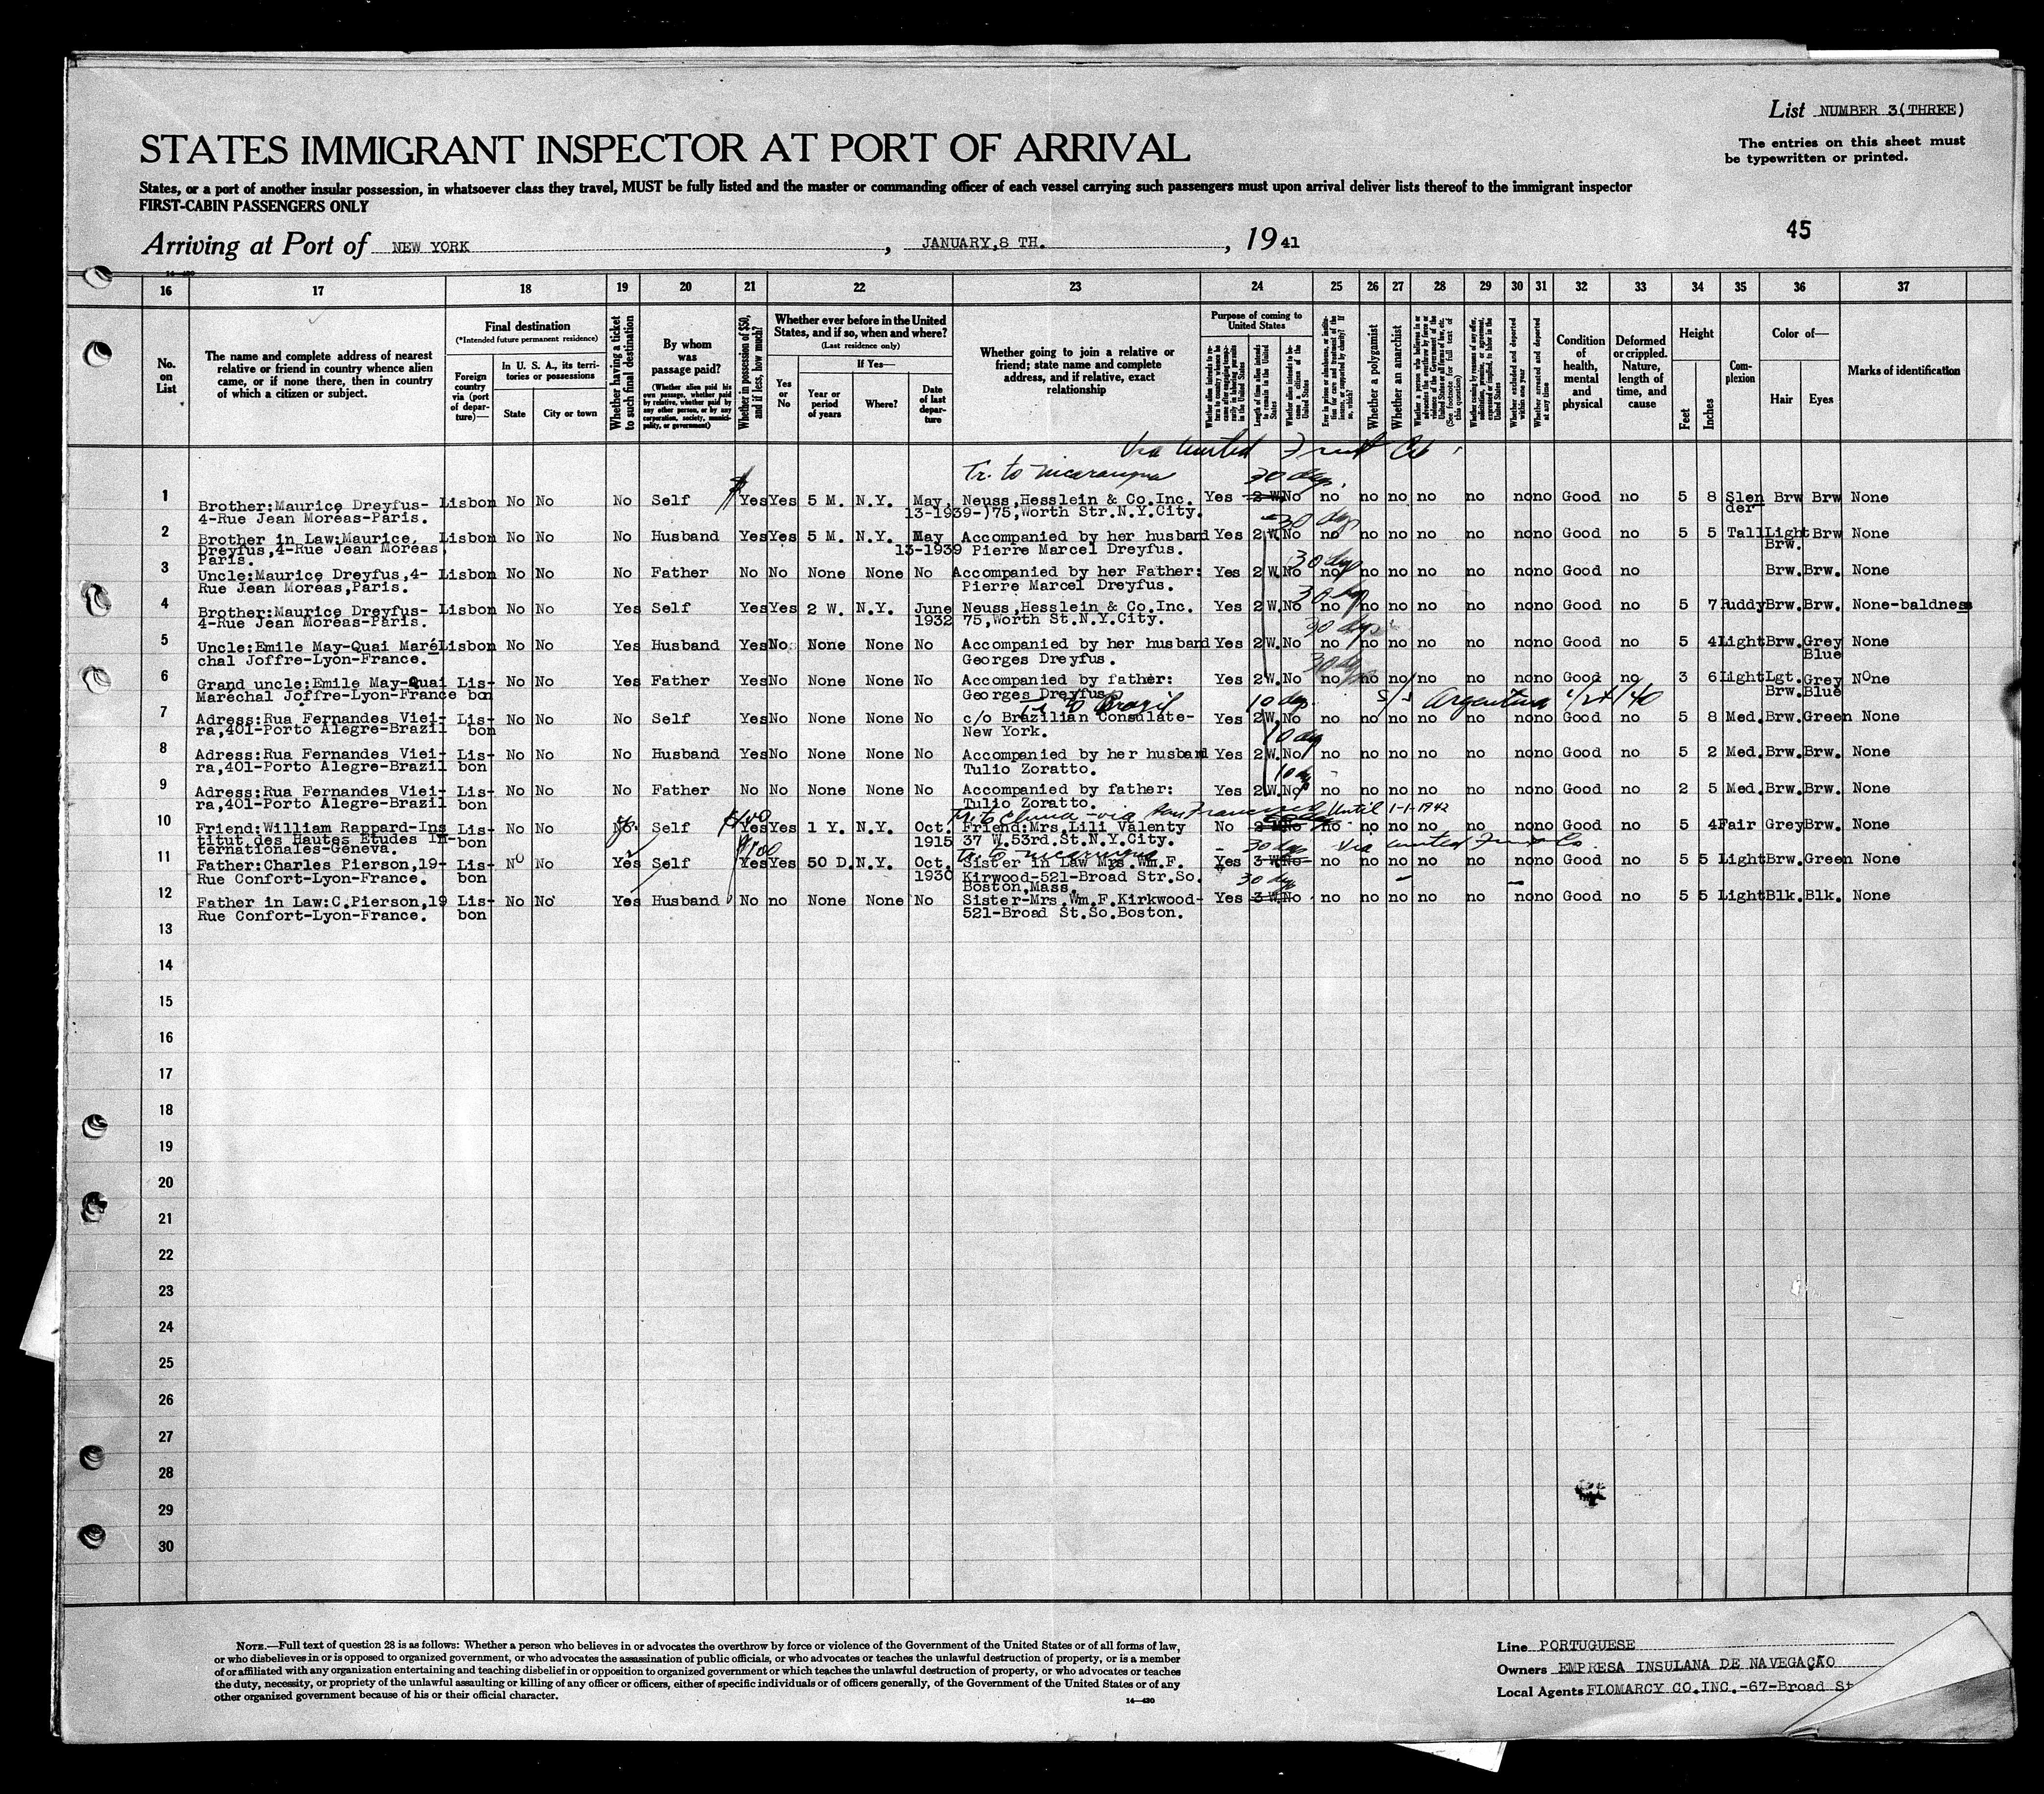 List NUMBER 3(THREE)
STATES IMMIGRANT INSPECTOR AT PORT OF ARRIVAL
The entries on this sheet must
be typewritten or printed.
States, or a port of another insular possession, in whatsoever class they travel, MUST be fully listed and the master or commanding officer of each vessel carrying such passengers must upon arrival deliver lists thereof to the immigrant inspector
FIRST-CABIN PASSENGERS ONLY
45
Arriving at Port of NEW YORK, JANUARY,8 TH., 1941
14—420
16 17 18 19 20 21 22 23 24 25 26 27 28 29 30 31 32 33 34 35 36 37
No. on List
The name and complete address of nearest
relative or friend in country whence alien
came, or if none there, then in country
of which a citizen or subject.
Final destination
(*Intended future permanent residence)
Foreign country via (port of departure)—
In U. S. A., its territories or possessions
State
City or town
Whether having a ticket to such final destination
By whom was passage paid?
(Whether alien paid his own passage, whether paid by relative, whether paid by any other person, or by any corporation, society, municipality, or government)
Whether in possession of $50, and if less, how much?
Whether ever before in the United
States, and if so, when and where?
(Last residence only)
Yes or No
If Yes—
Year or period of years
Where?
Date of last departure
Whether going to join a relative or
friend; state name and complete
address, and if relative, exact
relationship
Purpose of coming to United States
Length of time alien intends to remain in the United States
Whether alien intends to become a citizen of the United States
Whether a polygamist
Whether an anarchist
(See footnote for full text of this question)
Whether excluded and deported within one year
Whether arrested and deported at any time
Condition of health, mental and physical
Deformed or crippled. Nature, length of time, and cause
Height
Feet
Inches
Complexion
Color of—
Hair
Eyes
Marks of identification
Via United Fruit Co.
Tr. to Nicaragua
30 days.
1 Brother:Maurice Dreyfus- Lisbon No No No Self Yes Yes 5 M. N.Y. May, Neuss,Hesslein & Co.Inc. Yes 2 W. No no no no no no no no Good no 5 8 Slen Brw Brw None
4-Rue Jean Moréas-Paris. 13-1939-)75,Worth Str.N.Y.City. der
30 days
2 Brother in Law:Maurice Lisbon No No No Husband Yes Yes 5 M. N.Y. May Accompanied by her husband Yes 2 W. No no no no no no no no Good no 5 5 Tall Light Brw None
Dreyfus,4-Rue Jean Moréas 13-1939 Pierre Marcel Dreyfus. Brw.
Paris.
30 days
3 Uncle:Maurice Dreyfus,4- Lisbon No No No Father No No None None No Accompanied by her Father: Yes 2 W. No no no no no no no no Good no Brw. Brw. None
Rue Jean Moreas,Paris. Pierre Marcel Dreyfus.
30 days
4 Brother:Maurice Dreyfus- Lisbon No No Yes Self Yes Yes 2 W. N.Y. June Neuss,Hesslein & Co.Inc. Yes 2 W. No no no no no no no no Good no 5 7 Ruddy Brw. Brw. None-baldness
4-Rue Jean Moréas-Paris. 1932 75,Worth St.N.Y.City.
30 days
5 Uncle:Emile May-Quai Maré Lisbon No No Yes Husband Yes No None None No Accompanied by her husband Yes 2 W. No no no no no no no no Good no 5 4 Light Brw. Grey None
chal Joffre-Lyon-France. Georges Dreyfus. Blue
30 days
6 Grand uncle:Emile May-Quai Lis- No No Yes Father Yes No None None No Accompanied by father: Yes 2 W. No no no no no no no no Good no 3 6 Light Lgt. Grey None
Maréchal Joffre-Lyon-France bon Georges Dreyfus. Brw. Blue
Tr. to Brazil 10 days S/S Argentina 1/24/40
7 Adress:Rua Fernandes Viei- Lis- No No No Self Yes No None None No c/o Brazilian Consulate- Yes 2 W. No no no no no no no no Good no 5 8 Med. Brw. Green None
ra,401-Porto Alegre-Brazil bon New York.
10 days
8 Adress:Rua Fernandes Viei- Lis- No No No Husband Yes No None None No Accompanied by her husband Yes 2 W. No no no no no no no no Good no 5 2 Med. Brw. Brw. None
ra,401-Porto Alegre-Brazil bon Tulio Zoratto.
10 days
9 Adress:Rua Fernandes Viei- Lis- No No No Father No No None None No Accompanied by father: Yes 2 W. No no no no no no no no Good no 2 5 Med. Brw. Brw. None
ra,401-Porto Alegre-Brazil bon Tulio Zoratto.
Tr. to China - via San Francisco Until 1-1-1942
10 Friend:William Rappard-Ins Lis- No No No Self Yes Yes 1 Y. N.Y. Oct. Friend:Mrs.Lili Valenty No No no no no no no no no Good no 5 4 Fair Grey Brw. None
titut des Hautes Etudes In- bon 1915 37 W.53rd.St.N.Y.City.
ternationales-Geneva.
Tr. to Nicaragua 30 days Via United Fruit Co.
11 Father:Charles Pierson,19- Lis- No No Yes Self Yes Yes 50 D. N.Y. Oct. Sister in Law Mrs.Wm.F. Yes 3 W. No no no no no no no no Good no 5 5 Light Brw. Green None
Rue Confort-Lyon-France. bon 1930 Kirwood-521-Broad Str.So.
Boston,Mass.
30 days
12 Father in Law:C.Pierson,19 Lis- No No Yes Husband No no None None No Sister-Mrs.Wm.F.Kirkwood- Yes 3 W. No no no no no no no no Good no 5 5 Light Blk. Blk. None
Rue Confort-Lyon-France. bon 521-Broad St.So.Boston.
13
14
15
16
17
18
19
20
21
22
23
24
25
26
27
28
29
30
NOTE.—Full text of question 28 is as follows: Whether a person who believes in or advocates the overthrow by force or violence of the Government of the United States or of all forms of law,
or who disbelieves in or is opposed to organized government, or who advocates the assassination of public officials, or who advocates or teaches the unlawful destruction of property, or is a member
of or affiliated with any organization entertaining and teaching disbelief in or opposition to organized government or which teaches the unlawful destruction of property, or who advocates or teaches
the duty, necessity, or propriety of the unlawful assaulting or killing of any officer or officers, either of specific individuals or of officers generally, of the Government of the United States or of any
other organized government because of his or their official character.
14—420
Line PORTUGUESE
Owners EMPRESA INSULANA DE NAVEGAÇÃO
Local Agents FLOMARCY CO.INC.-67-Broad St